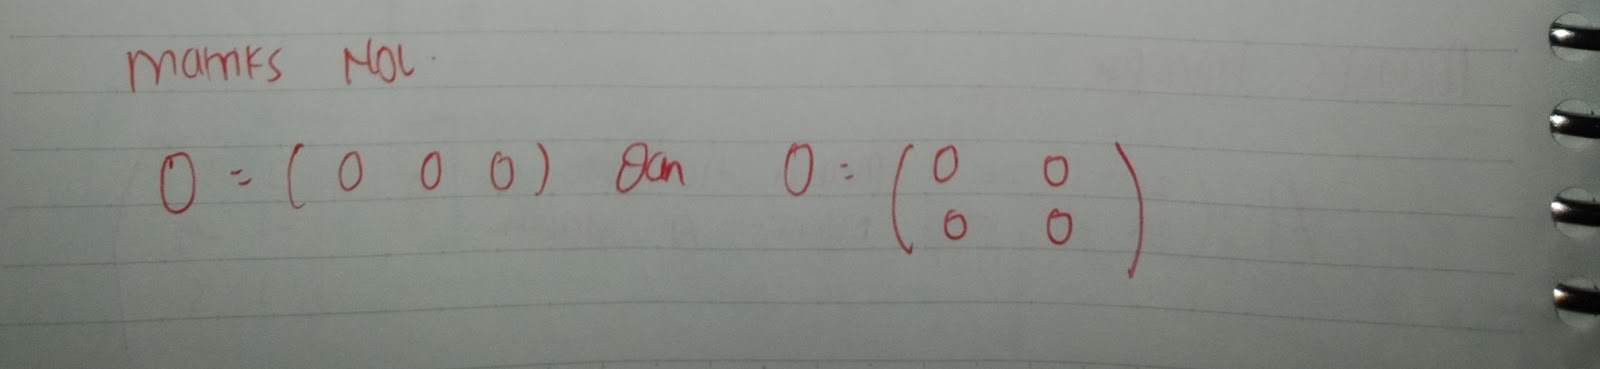 Matriks Nol.
O = ( 0 0 0 ) dan O = ( 0 0
0 0 )